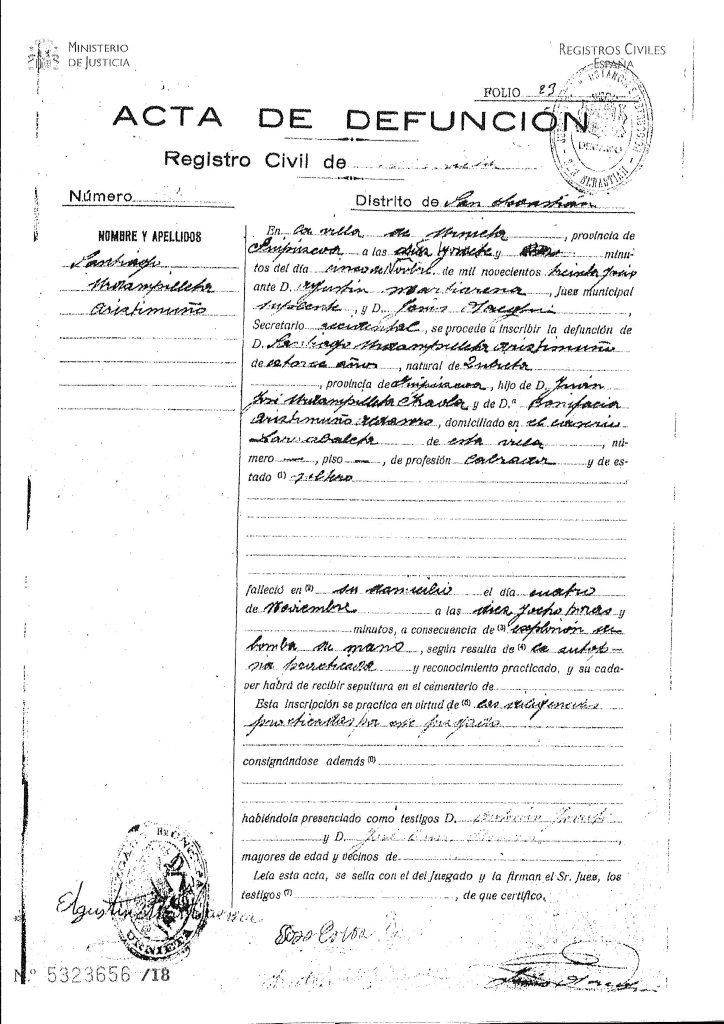 MINISTERIO
DE JUSTICIA
REGISTROS CIVILES
ESPAÑA
FOLIO 23
ACTA DE DEFUNCIÓN
Registro Civil de
Número
Distrito de San Sebastián
NOMBRE Y APELLIDOS
Santiago
Aristimuño
En la villa de Urnieta, provincia de
Guipúzcoa a las diez y siete y minu-
tos del día cinco de Novbre de mil novecientos treinta y seis
ante D. Agustín Martiarena, Juez municipal
suplente, y D. Jesús
Secretario accidental, se procede a inscribir la defunción de
D. Santiago Aristimuño
de catorce años, natural de Zubieta
, provincia de Guipúzcoa, hijo de D. Juán
José y de D.ª Bonifacia
Aristimuño, domiciliado en el caserío
de esta villa, nú-
mero —, piso —, de profesión labrador y de es-
tado (1) soltero
falleció en (2) su domicilio el día cuatro
de Noviembre a las diez y ocho horas y
minutos, a consecuencia de (3) explosión de
bomba de mano, según resulta de (4) la autop-
sia practicada y reconocimiento practicado, y su cada-
ver habrá de recibir sepultura en el cementerio de
Esta inscripción se practica en virtud de (5) las diligencias
practicadas por este juzgado
consignándose además (6)
habiéndola presenciado como testigos D.
y D. José
mayores de edad y vecinos de
Leída esta acta, se sella con el del Juzgado y la firman el Sr. Juez, los
testigos (7) , de que certifico.
URNIETA
Agustín Martiarena
N.º 5323656 /18